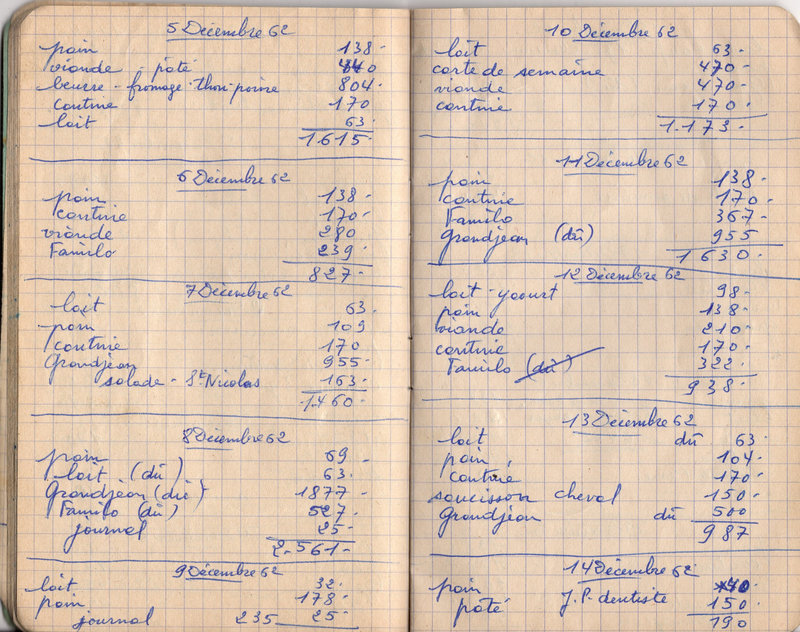 5 Décembre 62
pain 138-
viande - pâté 440
beurre - fromage - thon - poire 804-
cantine 170
lait 63-
1.615-
6 Décembre 62
pain 138-
cantine 170-
viande 280
Familo 239-
827-
7 Décembre 62
lait 63-
pain 109
cantine 170
Grandjean 955-
salade - St Nicolas 163-
1.460-
8 Décembre 62
pain 69-
lait (dû) 63-
Grandjean (dû) 1877-
Familo (dû) 527-
journal 25-
2.561-
9 Décembre 62
lait 32-
pain 178-
journal 235 25-
10 Décembre 62
lait 63-
carte de semaine 470-
viande 470-
cantine 170-
1.173-
11 Décembre 62
pain 138-
cantine 170-
Familo 367-
Grandjean (dû) 955
1630-
12 Décembre 62
lait - yaourt 98-
pain 138-
viande 210-
cantine 170-
Familo (dû) 322-
938-
13 Décembre 62
lait dû 63-
pain, 104-
cantine 170-
saucisson cheval 150-
Grandjean dû 500
987
14 Décembre 62
pain 40-
pâté J.P. dentiste 150-
190